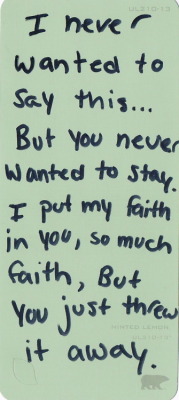 UL210-13
I never
wanted to
say this...
But you never
wanted to stay.
I put my faith
in you, so much
faith, But
you just threw
it away.